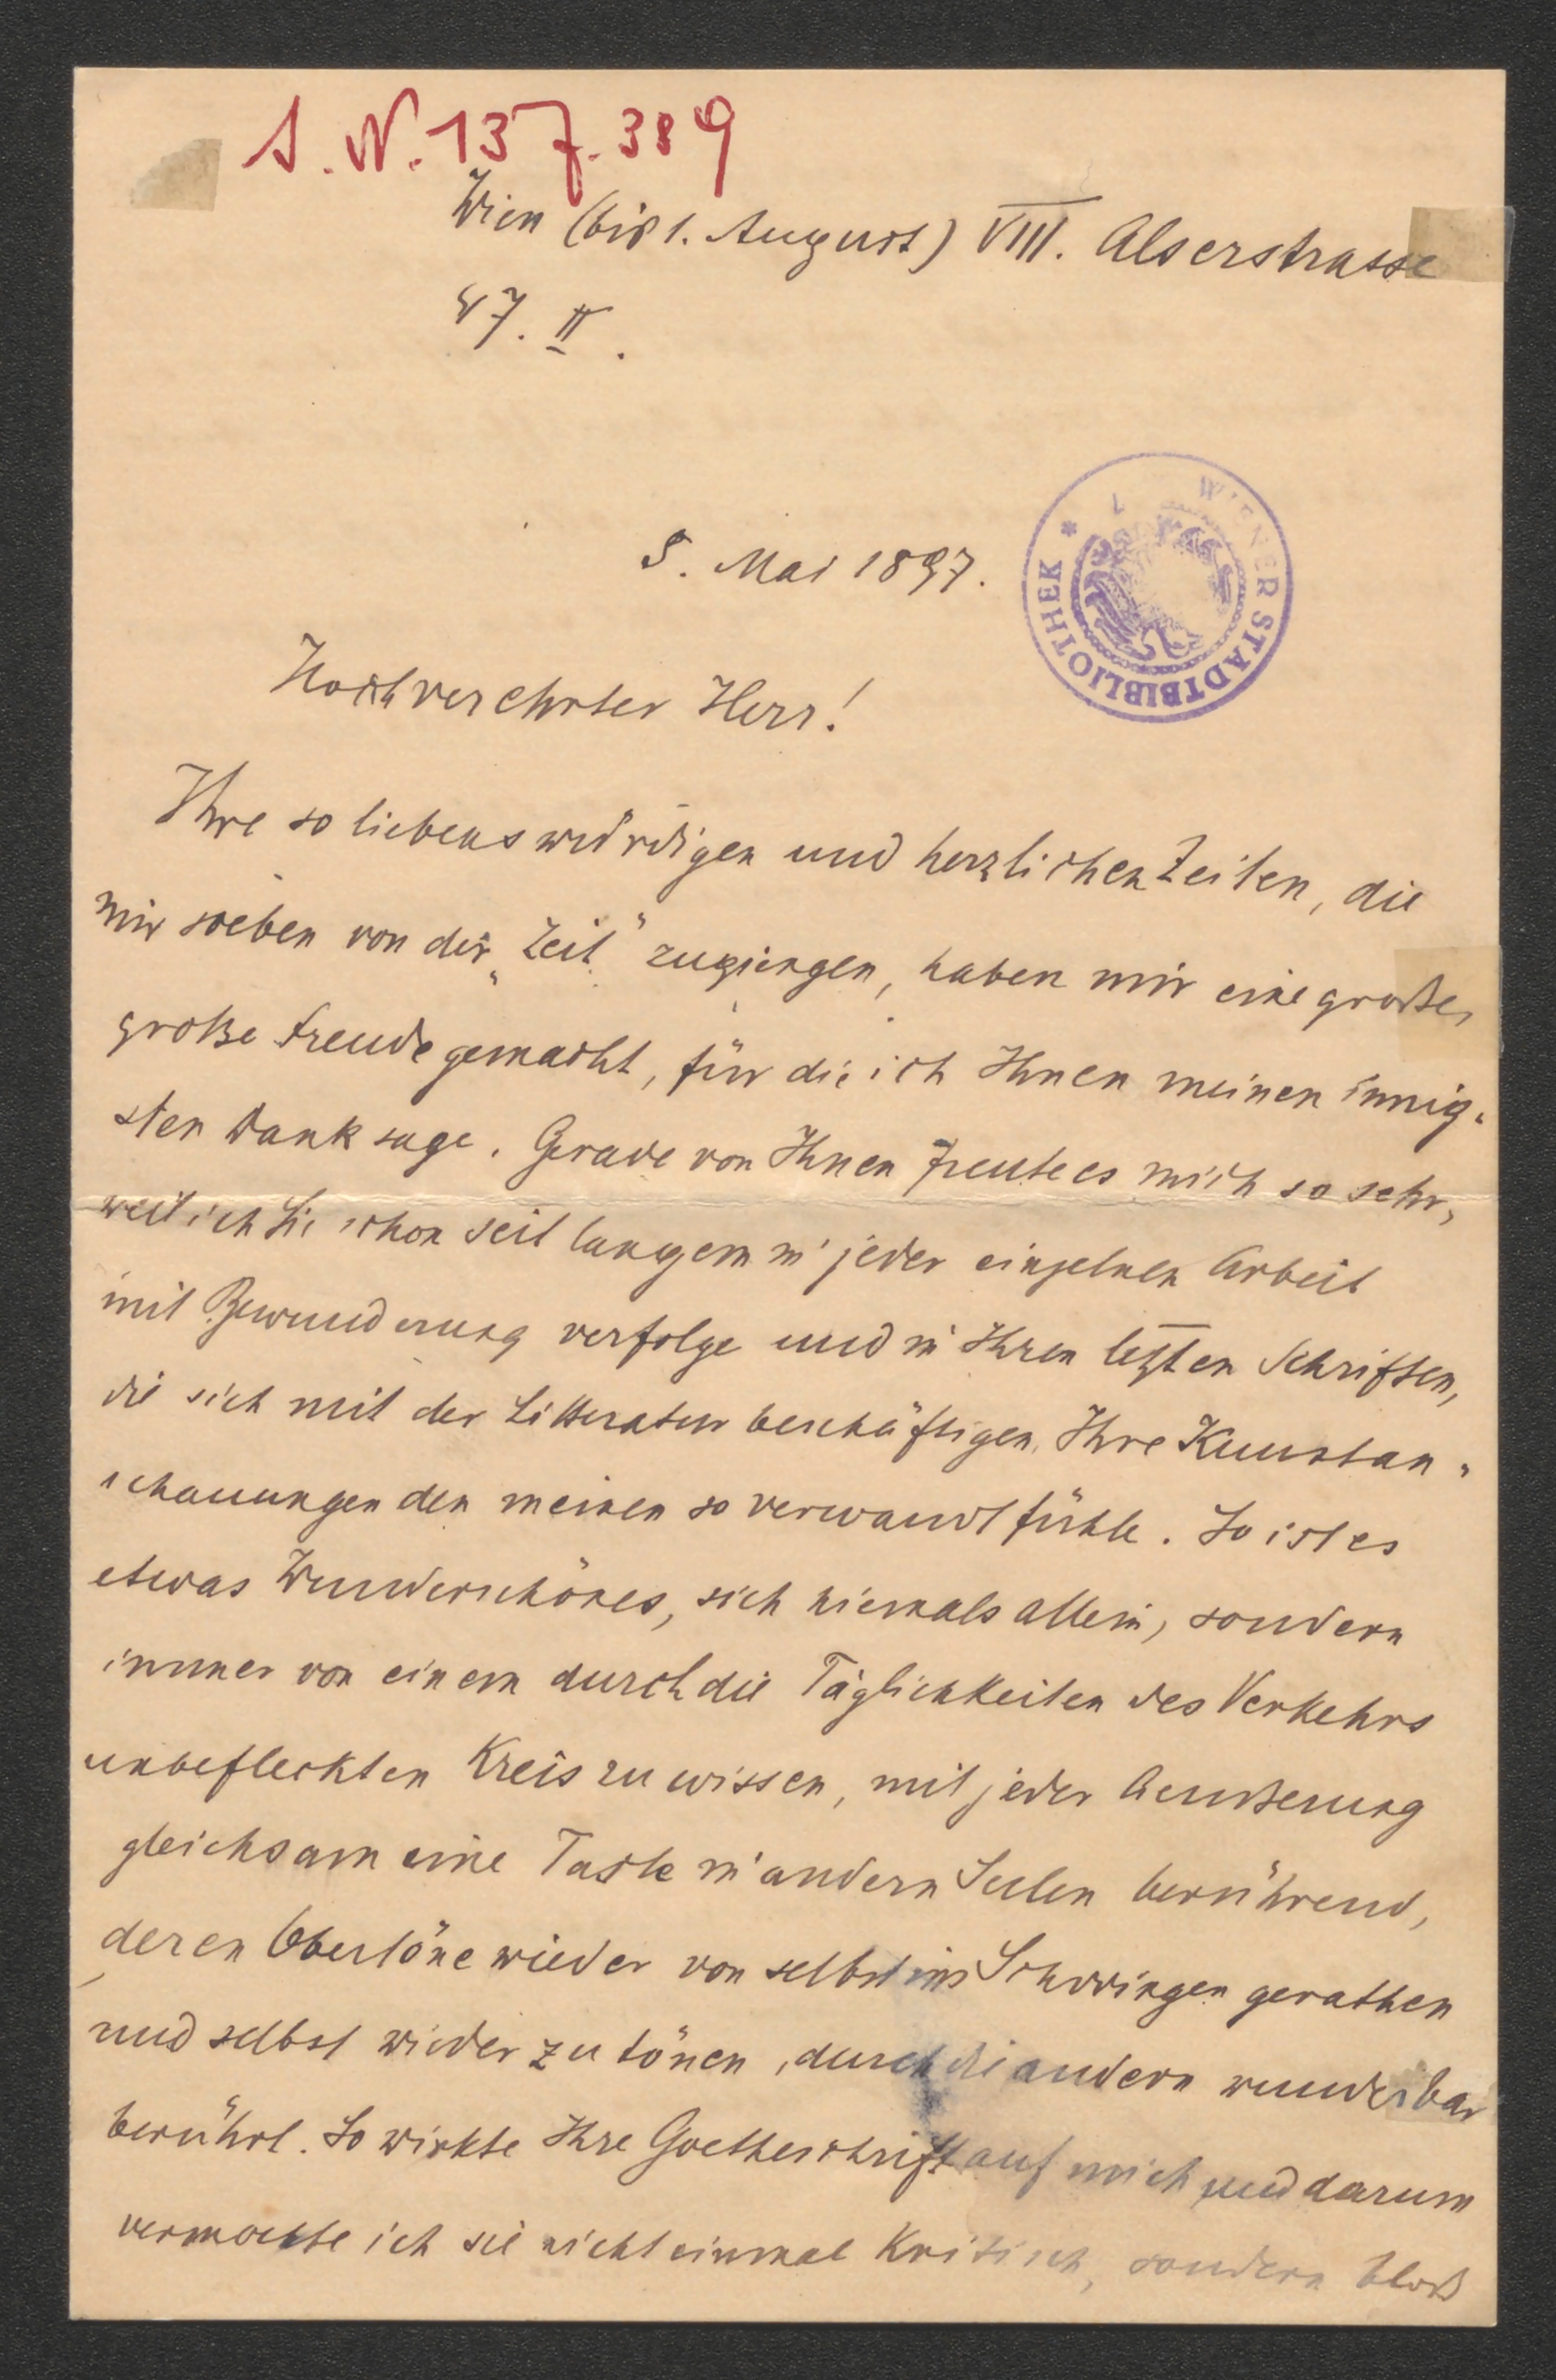 I.N. 137.389
Wien (bis 1. August) VIII. Alserstrasse
47. II.
5. Mai 1897.
WIENER STADTBIBLIOTHEK *
Hochverehrter Herr!
Ihre so liebenswürdigen und herzlichen Zeilen, die
mir soeben von der „Zeit" zugiengen, haben mir eine große,
große Freude gemacht, für die ich Ihnen meinen innig-
sten Dank sage. Gerade von Ihnen freute es mich so sehr,
weil ich Sie schon seit langem in jeder einzelnen Arbeit
mit Bewunderung verfolge und in Ihren letzten Schriften,
die sich mit der Litteratur beschäftigen, Ihre Kunstan-
schauungen den meinen so verwandt fühle. So ist es
etwas Wunderschönes, sich niemals allein, sondern
immer von einem durch die Täglichkeiten des Verkehrs
unbefleckten Kreis zu wissen, mit jeder Aeußerung
gleichsam eine Taste in andern Seelen berührend,
deren Obertöne wieder von selbst ins Schwingen gerathen
und selbst wieder zu tönen, durch die andern wunderbar
berührt. So wirkte Ihre Goetheschrift auf mich und darum
vermochte ich sie nicht einmal kritisch, sondern bloß